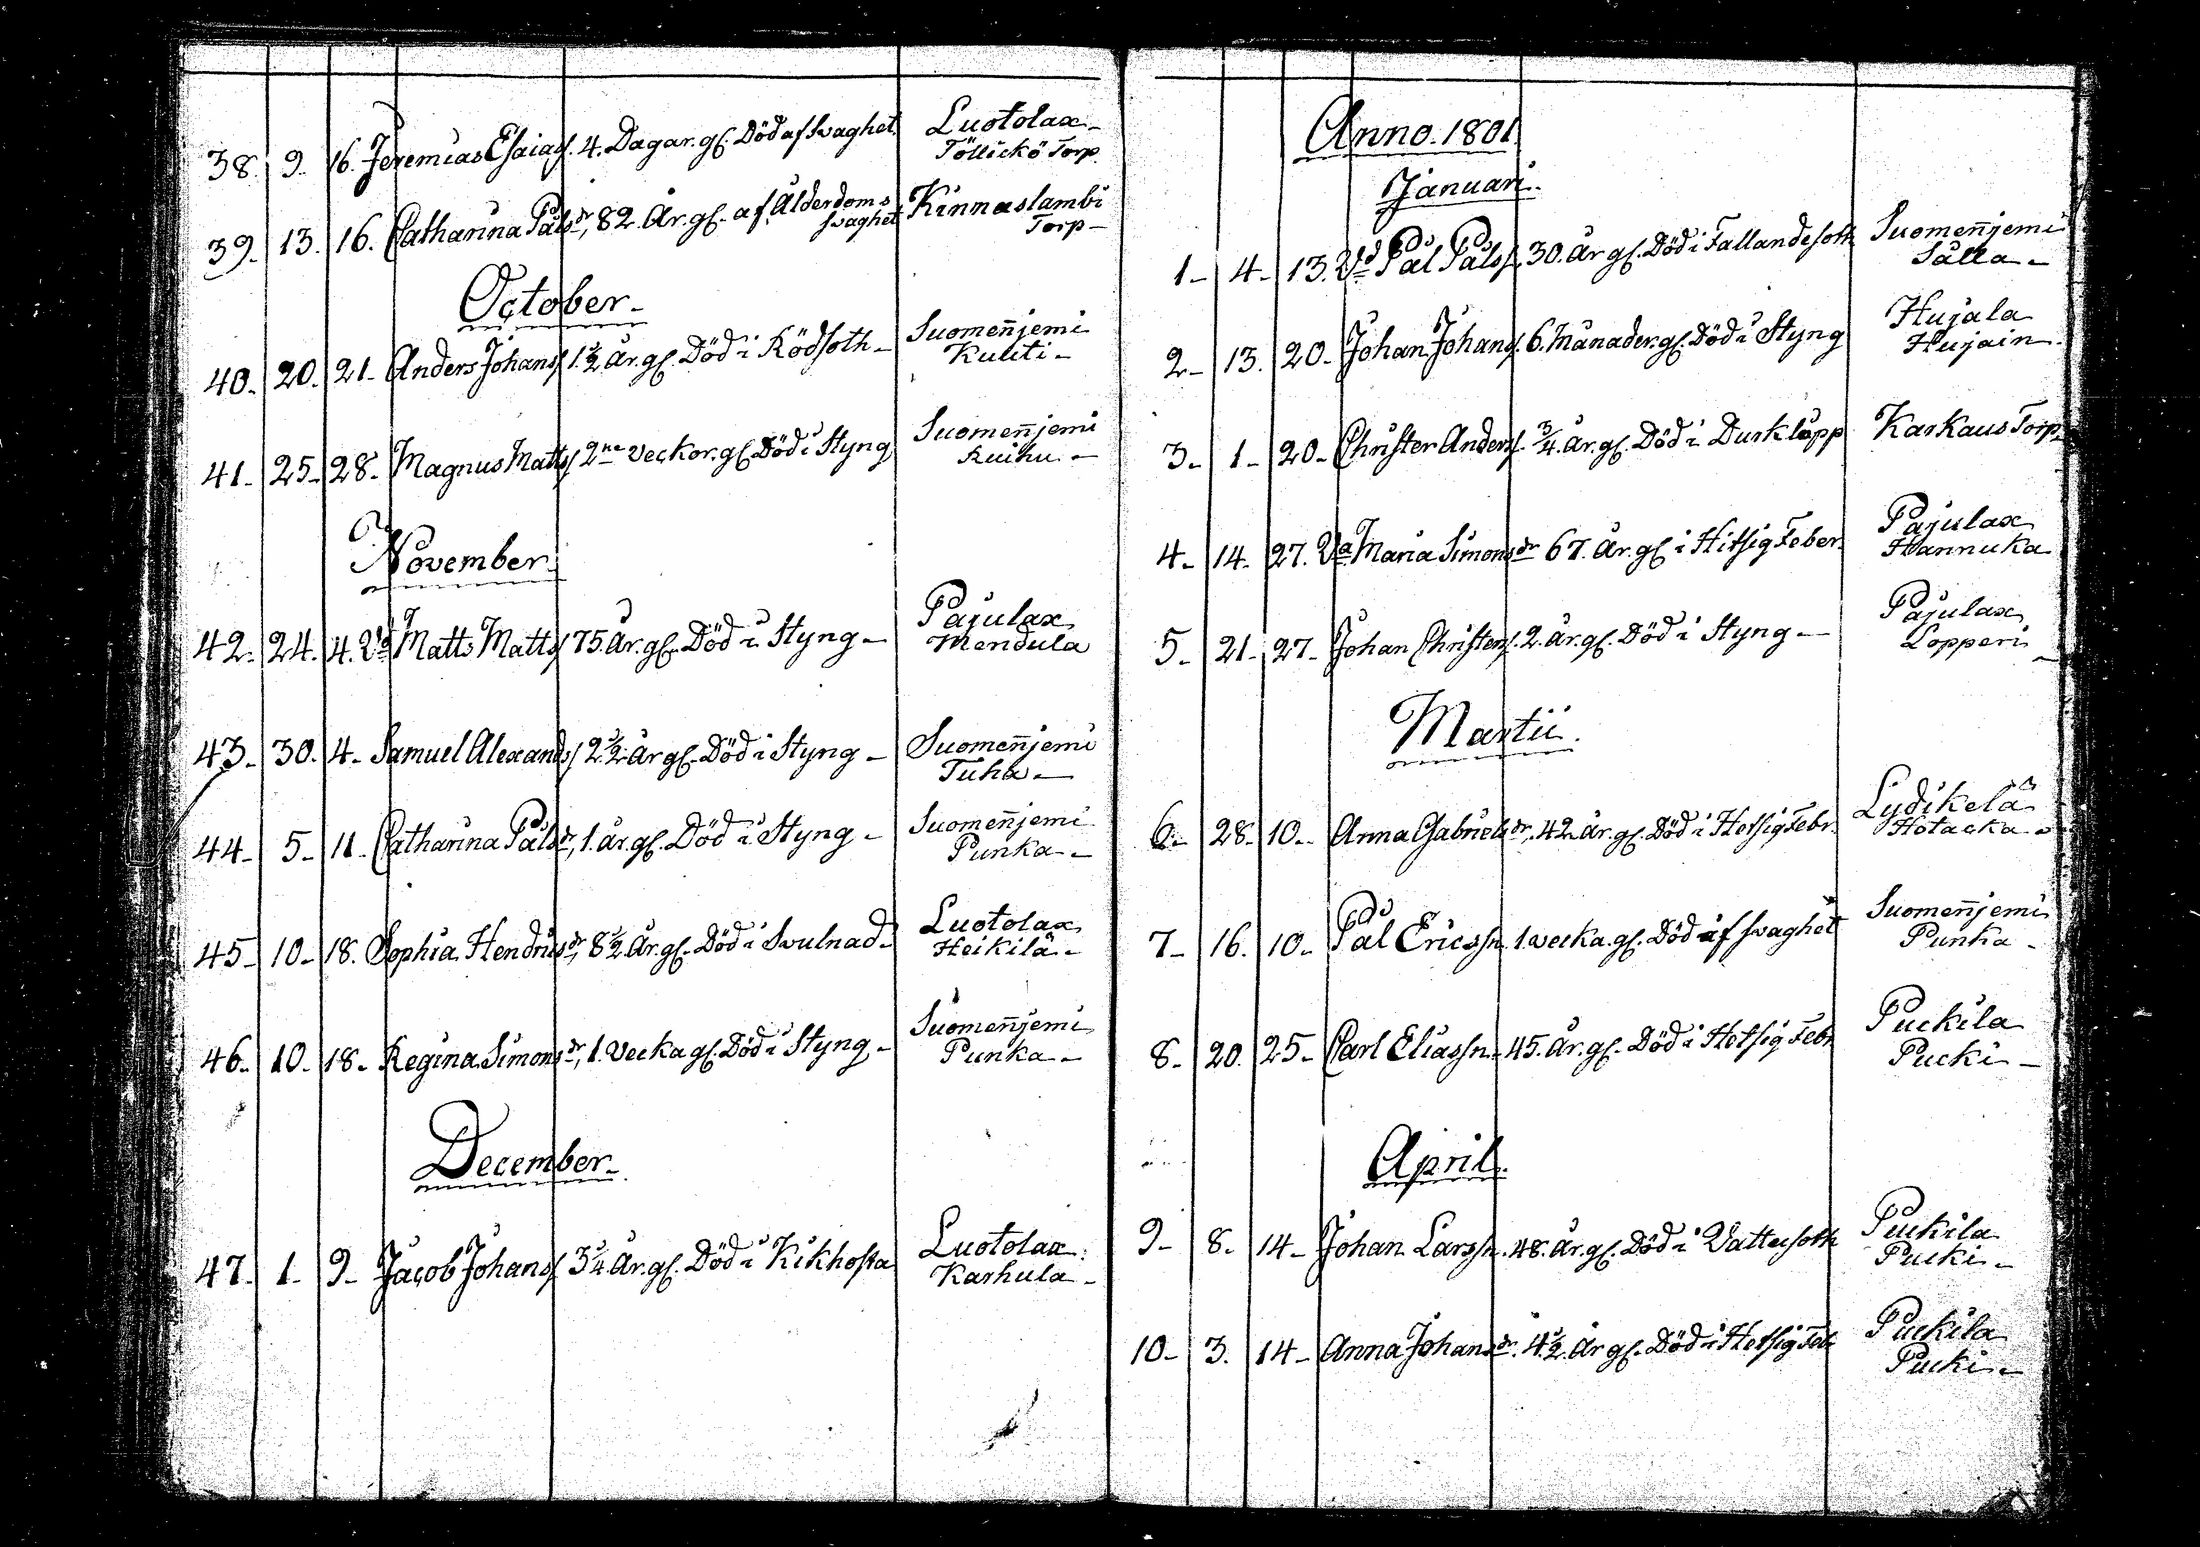 38. 9. 16. Jeremias Esaiass. 4. Dagar. gl. Död af Svaghet. Luotolax
Töllickö Torp.
39. 13. 16. Catharina Pålsdr, 82. År. gl. af Ålderdoms Kinnaslambi
svaghet Torp
October
40. 20. 21. Anders Johanss. 1 1/2 År. gl. Död i Rödsoth Suomenjemi
Kuliti
41. 25. 28. Magnus Matts. 2ne Veckor. gl. Död i Styng Suomenjemi
Ruihu
November
42. 24. 4. Vd Matts Matts. 75. År. gl. Död i Styng Pajulax
Mendula
43. 30. 4. Samuel Alexands. 2 1/2 År gl. Död i Styng Suomenjemi
Tuha
44. 5. 11. Catharina Pålsdr, 1. år. gl. Död i Styng Suomenjemi
Punka
45. 10. 18. Sophia Hendrisdr, 8 1/2 År. gl. Död i Svulnad Luotolax
Heikilä
46. 10. 18. Regina Simonsdr, 1. Vecka gl. Död i Styng Suomenjemi
Punka
December
47. 1. 9. Jacob Johans. 3/4 År. gl. Död i Kikhosta Luotolax
Karhula
Anno. 1801.
Januari.
1. 4. 13. Vd Pål Pålss. 30. År gl. Död i Fallandesoth Suomenjemi
Sålla
2. 13. 20. Johan Johans. 6. Månader. gl. Död i Styng Hujala
Hujain
3. 1. 20. Christer Anders. 3/4. År. gl. Död i Durklopp Karkaus Torp
4. 14. 27. Va Maria Simonsdr 67. År. gl. i Hitsig Feber Pajulax
Hannuka
5. 21. 27. Johan Christers. 2. År. gl. Död i Styng Pajulax
Lopperi
Martii.
6. 28. 10. Anna Gabrielsdr, 42 År. gl. Död i Hetsig Febr. Lydikelä
Hötacka
7. 16. 10. Pål Ericssn 1. vecka. gl. Död af svaghet Suomenjemi
Punka
8. 20. 25. Carl Eliassn 45. År. gl. Död i Hetsig Febr Puckila
Pucki
April.
9. 8. 14. Johan Larssn. 48. År. gl. Död i Vattusoth Puckila
Pucki
10. 3. 14. Anna Johansdr. 4 1/2 År gl. Död i Hetsig Feb Puckila
Pucki